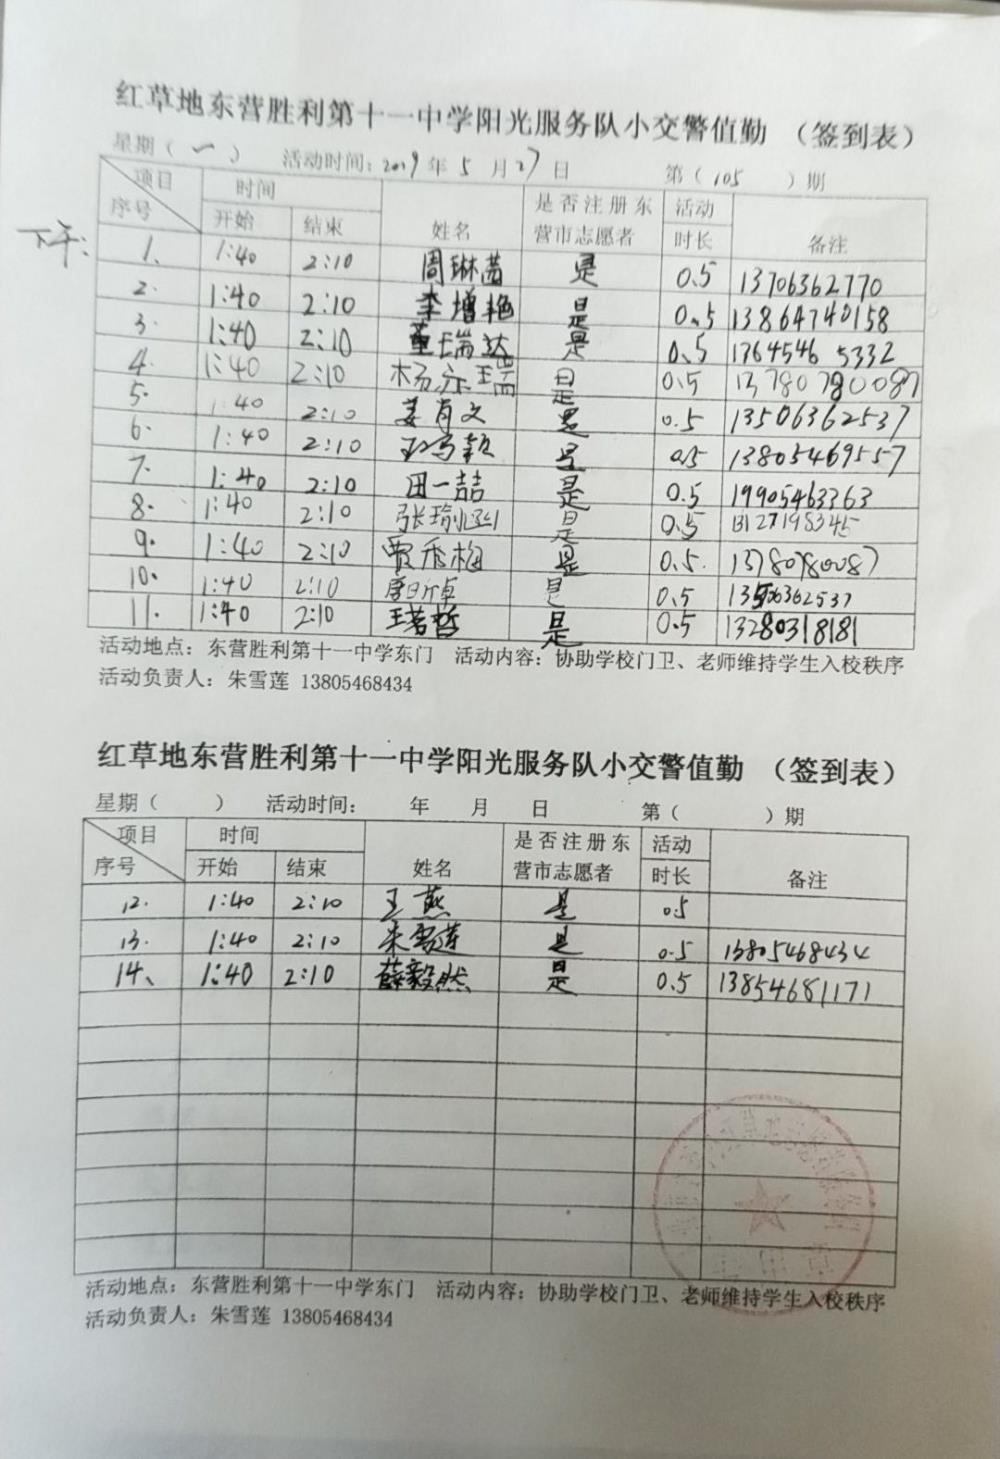 红草地东营胜利第十一中学阳光服务队小交警值勤 （签到表）
星期（一） 活动时间：2019年5月27日 第（105）期
项目 时间 是否注册东 活动
序号 开始 结束 姓名 营市志愿者 时长 备注
下午：
1、 1:40 2:10 周琳茜 是 0.5 13706362770
2. 1:40 2:10 李增艳 是 0.5 13864740158
3. 1:40 2:10 董瑞达 是 0.5 1364546 5332
4. 1:40 2:10 杨 瑞 是 0.5 13780780087
5. 1:40 2:10 姜肖文 是 0.5 13506362537
6. 1:40 2:10 是 0.5 13805469557
7. 1:40 2:10 田一喆 是 0.5 19905463363
8. 1:40 2:10 张瑜 是 0.5
9. 1:40 2:10 贾秀梅 是 0.5. 13780780087
10. 1:40 2:10 是 0.5 13506362537
11. 1:40 2:10 王若哲 是 0.5 13280318181
活动地点：东营胜利第十一中学东门 活动内容：协助学校门卫、老师维持学生入校秩序
活动负责人：朱雪莲 13805468434
红草地东营胜利第十一中学阳光服务队小交警值勤 （签到表）
星期（ ） 活动时间： 年 月 日 第（ ）期
项目 时间 是否注册东 活动
序号 开始 结束 姓名 营市志愿者 时长 备注
12. 1:40 2:10 王燕 是 0.5
13. 1:40 2:10 朱雪莲 是 0.5 13805468434
14、 1:40 2:10 薛毅然 是 0.5 13854681171
活动地点：东营胜利第十一中学东门 活动内容：协助学校门卫、老师维持学生入校秩序
活动负责人：朱雪莲 13805468434